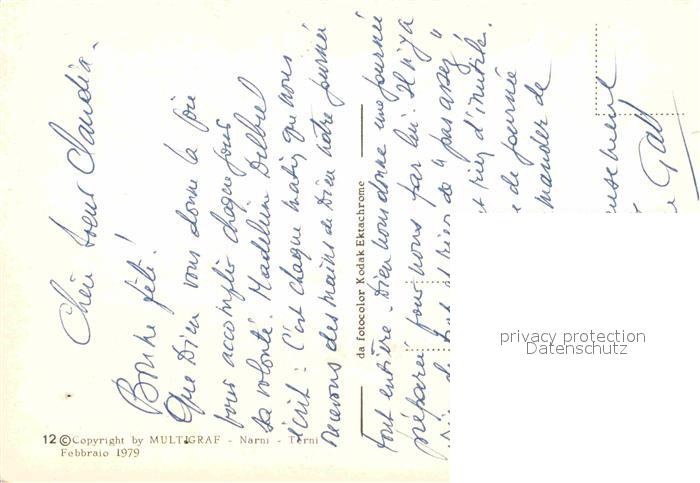 Chère Soeur Claudia.
Bonne fête!
Que Dieu vous donne la foie
pour accomplir chaque jour
sa volonté. Madeleine Delbrel
écrit: C'est chaque matin que nous
recevons des mains de Dieu notre journée
tout entière. Dieu nous donne une journée
préparée pour nous par lui. Il n'y a
"pas assez"
et rien d'inutile.
de journée
mander de
da fotocolor Kodak Ektachrome
12 © Copyright by MULTIGRAF - Narni - Terni
Febbraio 1979
privacy protection
Datenschutz